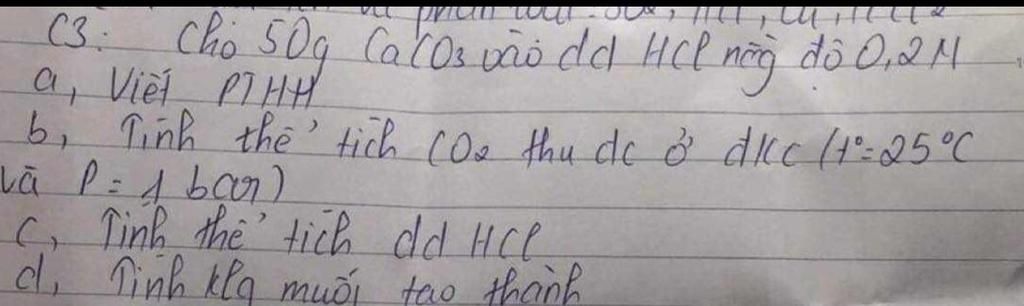 C3: Cho 50g CaCO3 vào dd HCl nồg độ 0,2M
a, Viết PTHH
b, Tính thể tích CO2 thu dc ở đkc (t°=25°C
và P = 1 bar)
c, Tính thể tích dd HCl
d, Tính klg muối tạo thành